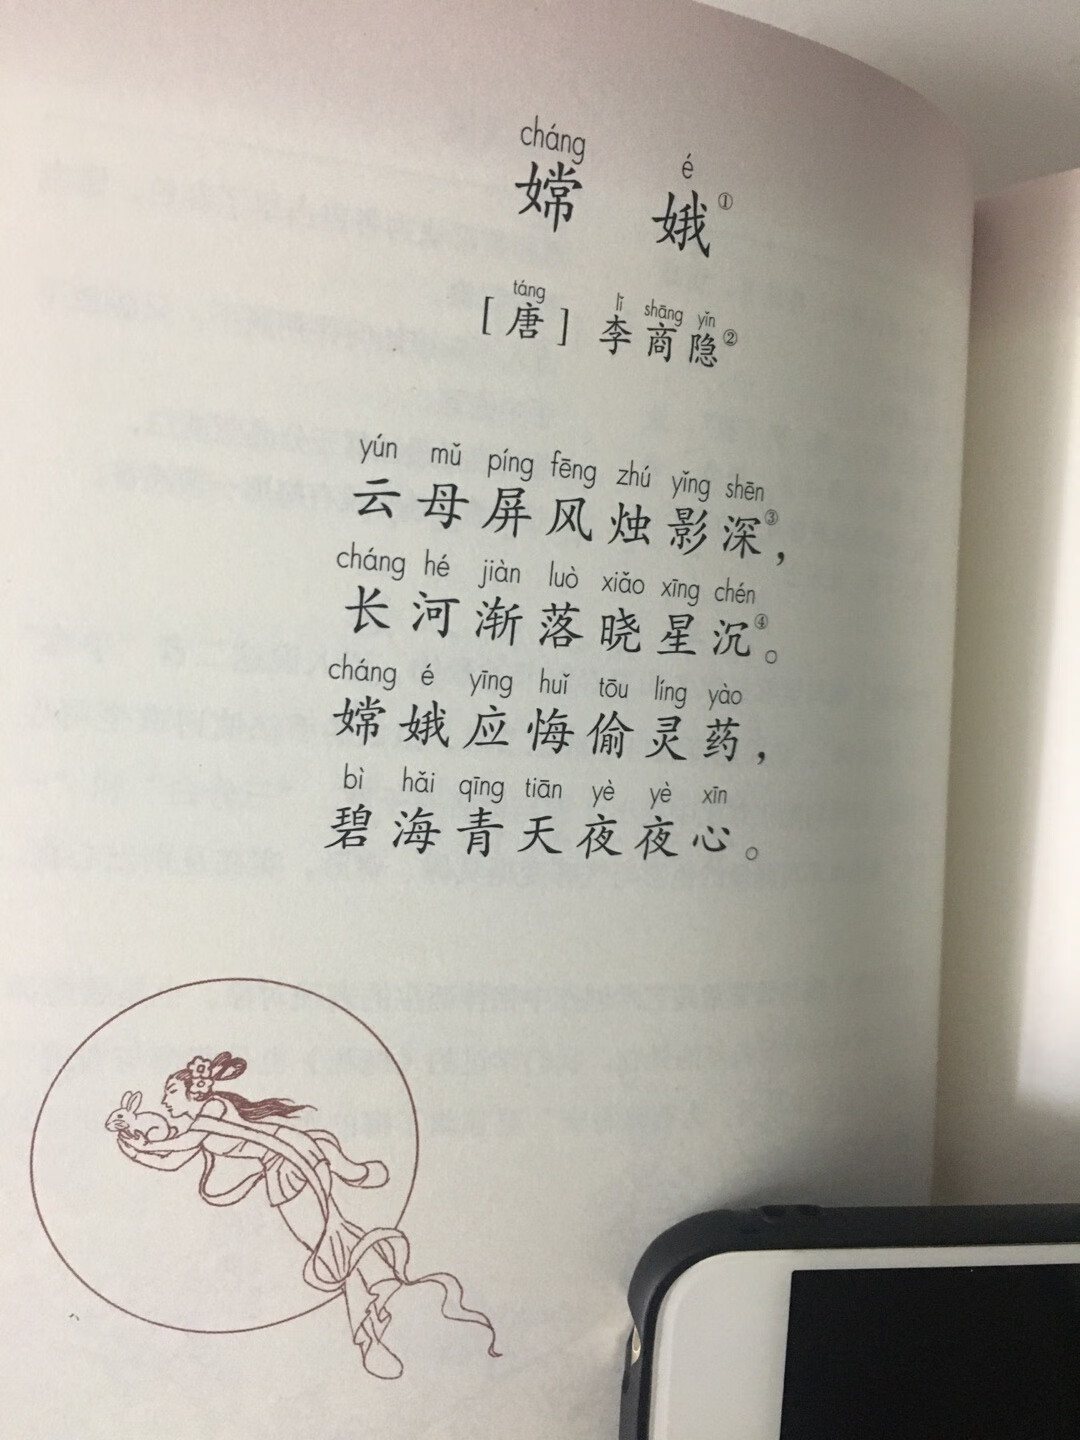 cháng é
嫦娥①
táng lǐ shāng yǐn
[唐] 李商隐②
yún mǔ píng fēng zhú yǐng shēn
云母屏风烛影深③，
cháng hé jiàn luò xiǎo xīng chén
长河渐落晓星沉④。
cháng é yīng huǐ tōu líng yào
嫦娥应悔偷灵药，
bì hǎi qīng tiān yè yè xīn
碧海青天夜夜心。